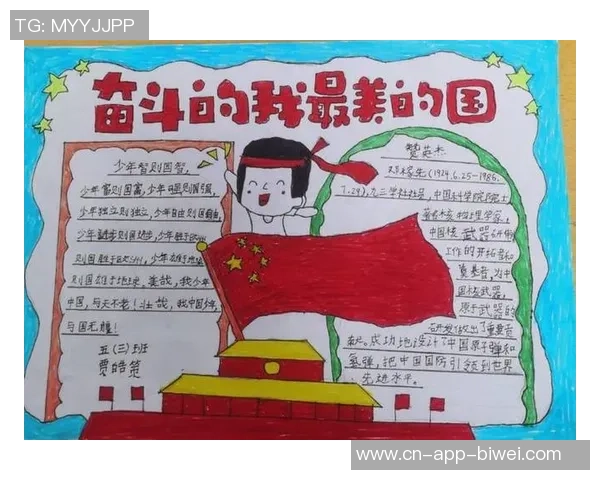 TG: MYYJJPP
奋斗的我最美的国
少年智则国智,
少年富则国富,少年强则国强,
少年独立则国独立,少年自由则国自由,
少年进步则国进步,少年胜于欧洲
则国胜于欧洲,少年雄于地球
则国雄于地球,美哉,我少年
中国,与天不老!壮哉,我中国少年,
与国无疆!
五(三)班
贾皓
赞英杰
邓稼先(1924.6.25-1986.
7.29),九三学社社员,中国科学院院士
著名核物理学家,
中国核武器研制
工作的开拓者和
奠基者,为中
国核武器,
原子武器的
研发做出了重要贡
献。成功地设计了中国原子弹和
氢弹,把中国国防引领到世界
先进水平。
www.cn-app-biwei.com